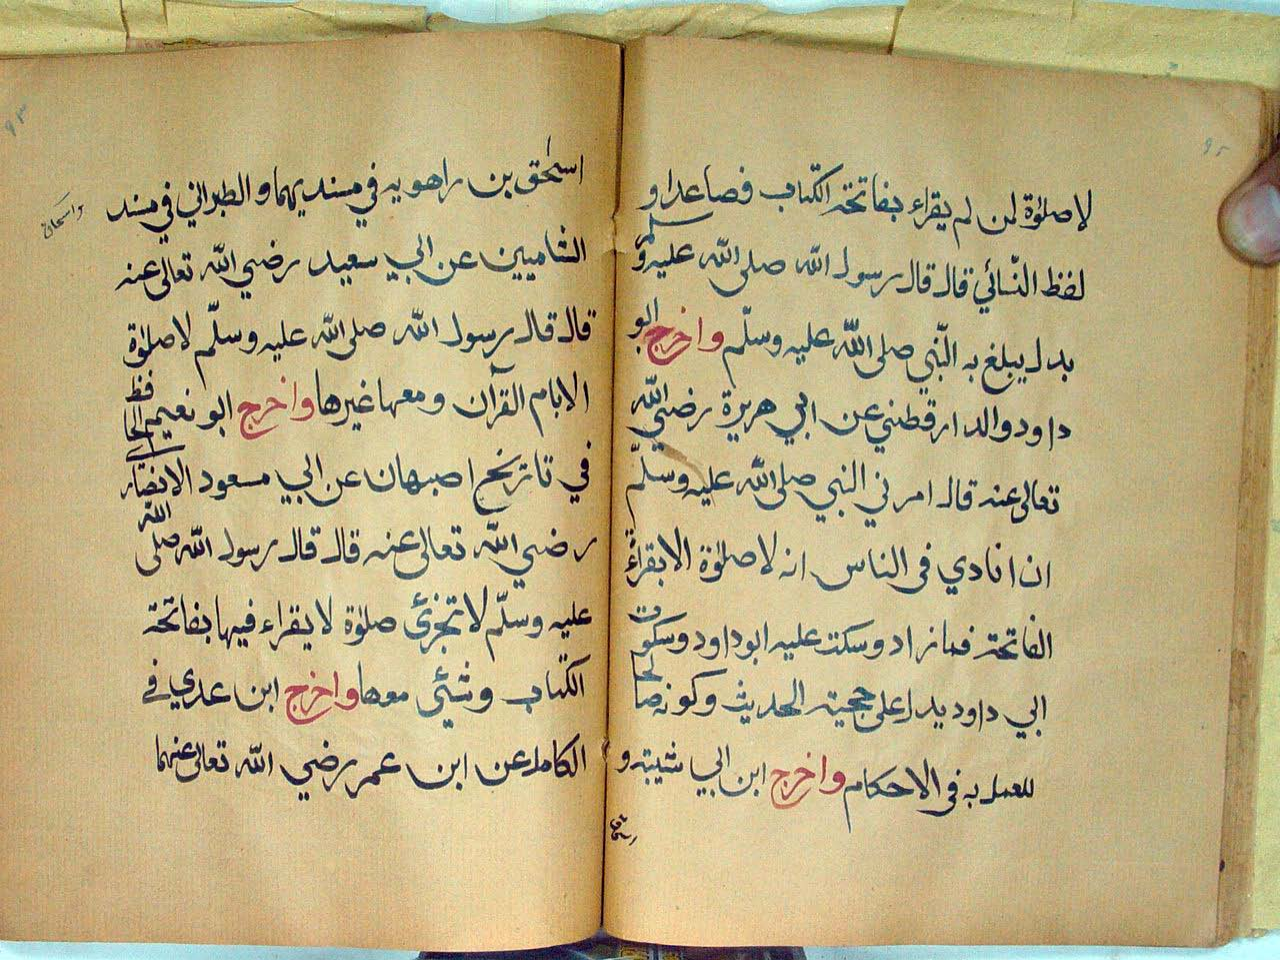 لا صلوٰة لمن لم يقراء بفاتحة الكتاب فصاعدا و
لفظ النّسائي قال قال رسول الله صلى الله عليه وسلم
بدل يبلغ به النّبي صلى الله عليه وسلّم واخرج ابو
داود والدارقطني عن ابي هريرة رضي الله
تعالى عنه قال امرني النبي صلى الله عليه وسلّم
ان انادي فى الناس انه لا صلوٰة الا بقراءة
الفاتحة فما زاد وسكت عليه ابو داود وسكوت
ابي داود يدل على حجية الحديث وكونه صالحا
للعمل به فى الاحكام واخرج ابن ابي شيبة و
اسحٰق بن راهويه في مسنديهما والطبراني في مسند
واسحاق
الشاميين عن ابي سعيد رضي الله تعالى عنه
قال قال رسول الله صلى الله عليه وسلّم لا صلوٰة
الا بام القرآن ومعها غيرها واخرج ابو نعيم الحافظ
في تاريخ اصبهان عن ابي مسعود الانصاري
رضي الله تعالى عنه قال قال رسول الله صلى الله
عليه وسلّم لا تجزئ صلوٰة لا يقراء فيها بفاتحة
الكتاب وشيئ معها واخرج ابن عدي في
الكامل عن ابن عمر رضي الله تعالى عنهما